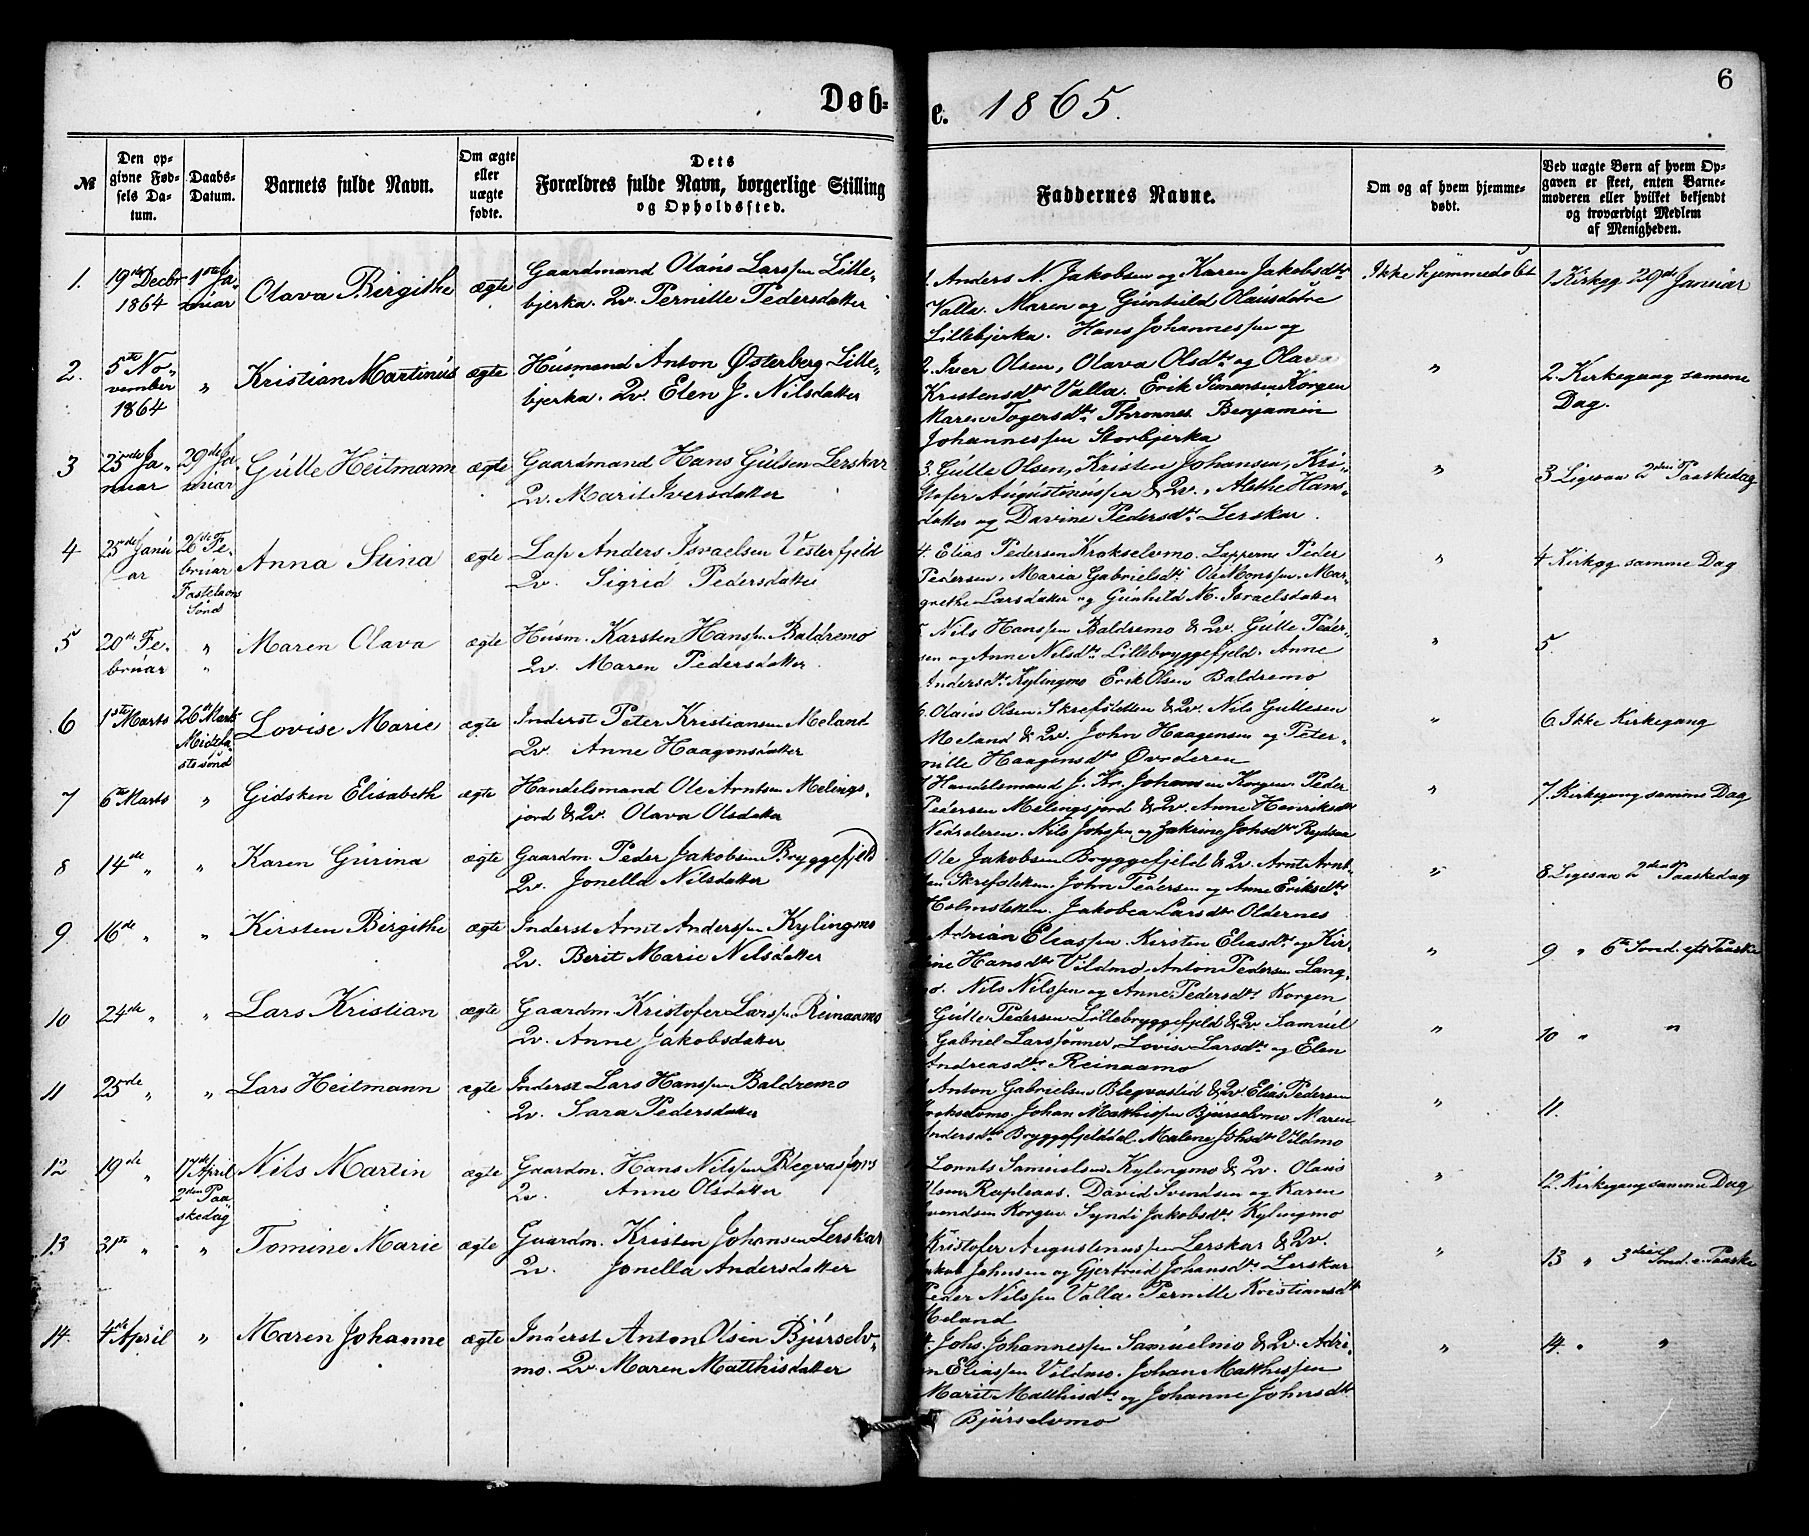 Døb-
e. 1865.
6
№
Den op-
givne Fød-
sels Da-
tum.
Daabs-
Datum.
Barnets fulde Navn.
Om ægte
eller
uægte
fødte.
Dets
Forældres fulde Navn, borgerlige Stilling
og Opholdssted.
Faddernes Navne.
Om og af hvem hjemme-
døbt.
Ved uægte Børn af hvem Op-
gaven er skeet, enten Barne-
moderen eller hvilket bekjendt
og troværdigt Medlem
af Menigheden.
1.
19de Decbr
1864
1ste Ja-
nuar
Olava Birgithe
ægte
Gaardmand Olaus Larssen Lille-
bjerka. Qv. Pernille Pedersdatter
1. Anders N. Jakobsen og Karen Jakobsdtr
Valla. Maren og Gunhild Olausdøtre
Lillebjerka. Hans Johannessen og
Ikke hjemmedøbt
1 Kirkg 29de Januar
2.
5te No-
vember
1864
"
Kristian Martinus
ægte
Husmand Anton Østerberg Lille-
bjerka. Qv. Elen J. Nilsdatter
2. Iver Olsen, Olava Olsdtr og Olava
Kristensdtr Valla. Erik Simonsen Korgen
Maren Togersdtr Thronnes Benjamin
Johannessen Storbjerka
"
2. Kirkegang samme
Dag.
3
25de Ja-
nuar
29de Ja-
nuar
Gulle Heitmann
ægte
Gaardmand Hans Gulsen Lerskar
Qv. Marit Iversdatter
3. Gulle Olsen, Kristen Johansen, Kri-
stofer Augustinussen & Qv., Alethe Hans-
datter og Davine Pedersdtr Lerskar.
"
3 Ligesaa 2den Paaskedag
4
23de Janu
ar
26de Fe-
bruar
Fastelavns
Sønd
Anna Stina
ægte
Lap Anders Israelsen Vesterfjeld
Qv. Sigrid Pedersdatter
4. Elias Pedersen Krokselvmo. Lapperne Peder
Pedersen, Maria Gabrielsdtr Ole Monssen. Mar-
grethe Larsdatter og Gunhild M. Israelsdatter
"
4 Kirkgg samme Dag
5
20de Fe-
bruar
"
"
Maren Olava
ægte
Husm. Karsten Hanssen Baldremo
Qv. Maren Pedersdatter
5 Nils Hanssen Baldremo & Qv. Gulle Peder-
sen og Anne Nilsdtr Lillebryggefjeld. Anne
Andersdtr Kylingmo Erik Olsen Baldremo
"
5.
6
1ste Marts
26de Marts
Midfa-
ste sønd
Lovise Marie
ægte
Inderst Peter Kristiansen Meland
Qv. Anne Haagensdatter
6. Olaus Olsen Skrefsletten & Qv. Nils Gullesen
Meland & Qv. John Haagensen og Peter-
nille Haagensdtr Øvrderen
"
6 Ikke Kirkegang
7
6te Marts
"
Gidsken Elisabeth
ægte
Handelsmand Ole Arntsen Melings-
jord & Qv. Olava Olsdatter
7 Handelsmand J. Kr. Johansen Korgen. Peder
Pedersen Melingsjord & Qv. Anne Henriksdtr
Nedreleren. Nils Johssen og Zakrine Johsdtr Rydsaa
"
7. Kirkegang samme Dag
8
14de "
"
Karen Gurina
ægte
Gaardm. Peder Jakobsen Bryggefjeld
Qv. Jonella Nilsdatter
Ole Jakobsen Bryggefjeld & Qv. Arnt Arnt-
sen Skrefsletten. John Pedersen og Anne Eriksdtr
Holmsletten. Jakobea Larsdtr Oldernes
"
8 Ligesaa 2den Paaskedag
9
16de "
"
Kirsten Birgithe
ægte
Inderst Arnt Anderssen Kylingmo
Qv. Berit Marie Nilsdatter
Adrian Eliassen. Kirsten Eliasdtr og Kir-
ine Hansdtr Vildmo. Anton Pedersen Lang-
mo. Nils Nilssen og Anne Pedersdtr Korgen
"
9 " 6te Sønd. eft Paaske
10
24de "
"
Lars Kristian
ægte
Gaardm. Kristofer Larssen Reinaamo
Qv. Anne Jakobsdatter
Gulle Pedersen Lillebryggefjeld & Qv. Samuel
Gabriel Larssønner Lovise Larsdtr og Elen
Andreasdtr Reinaamo
"
10 " "
11
25de "
"
Lars Heitmann
ægte
Inderst Lars Hanssen Baldremo
Qv. Sara Pedersdatter
Anton Gabrielsen Blegvaslid & Qv. Elias Pedersen
Krokselvmo. Johan Matthissen Bjurselvmo Maren
Andersdtr Bryggefjelddal. Malene Johsdtr Vildmo
"
11.
12
19de "
17de April
2den Paa
skedag
Nils Martin
ægte
Gaardm. Hans Nilssen Blegvas
Qv. Anne Olsdatter
Samuelsen Kylingmo & Qv. Olaus
Olsen Røssaas. David Svendsen og Karen
Svendsen Korgen. Syndi Jakobsdtr Kylingmo
"
12. Kirkegang samme Dag
13
31te "
"
Tomine Marie
ægte
Gaardm. Kristen Johansen Lerskar
Qv. Jonella Andersdatter
Kristofer Augustinussen Lerskar & Qv.
Johnsen og Gjertrud Johansdtr Lerskar
Peder Nilssen Valla. Pernille Kristiansdtr
Meland
"
13 " 3die Sønd. e. Paaske
14.
4de April
"
Maren Johanne
ægte
Inderst Anton Olsen Bjurselv-
mo. Qv. Maren Matthisdatter
Johs. Johannessen Samuelmo & Qv. Adri-
an Eliassen Vildmo. Johan Matthissen
Marit Matthisdtr og Johanne Johnsdtr
Bjurselvmo
"
14. " "